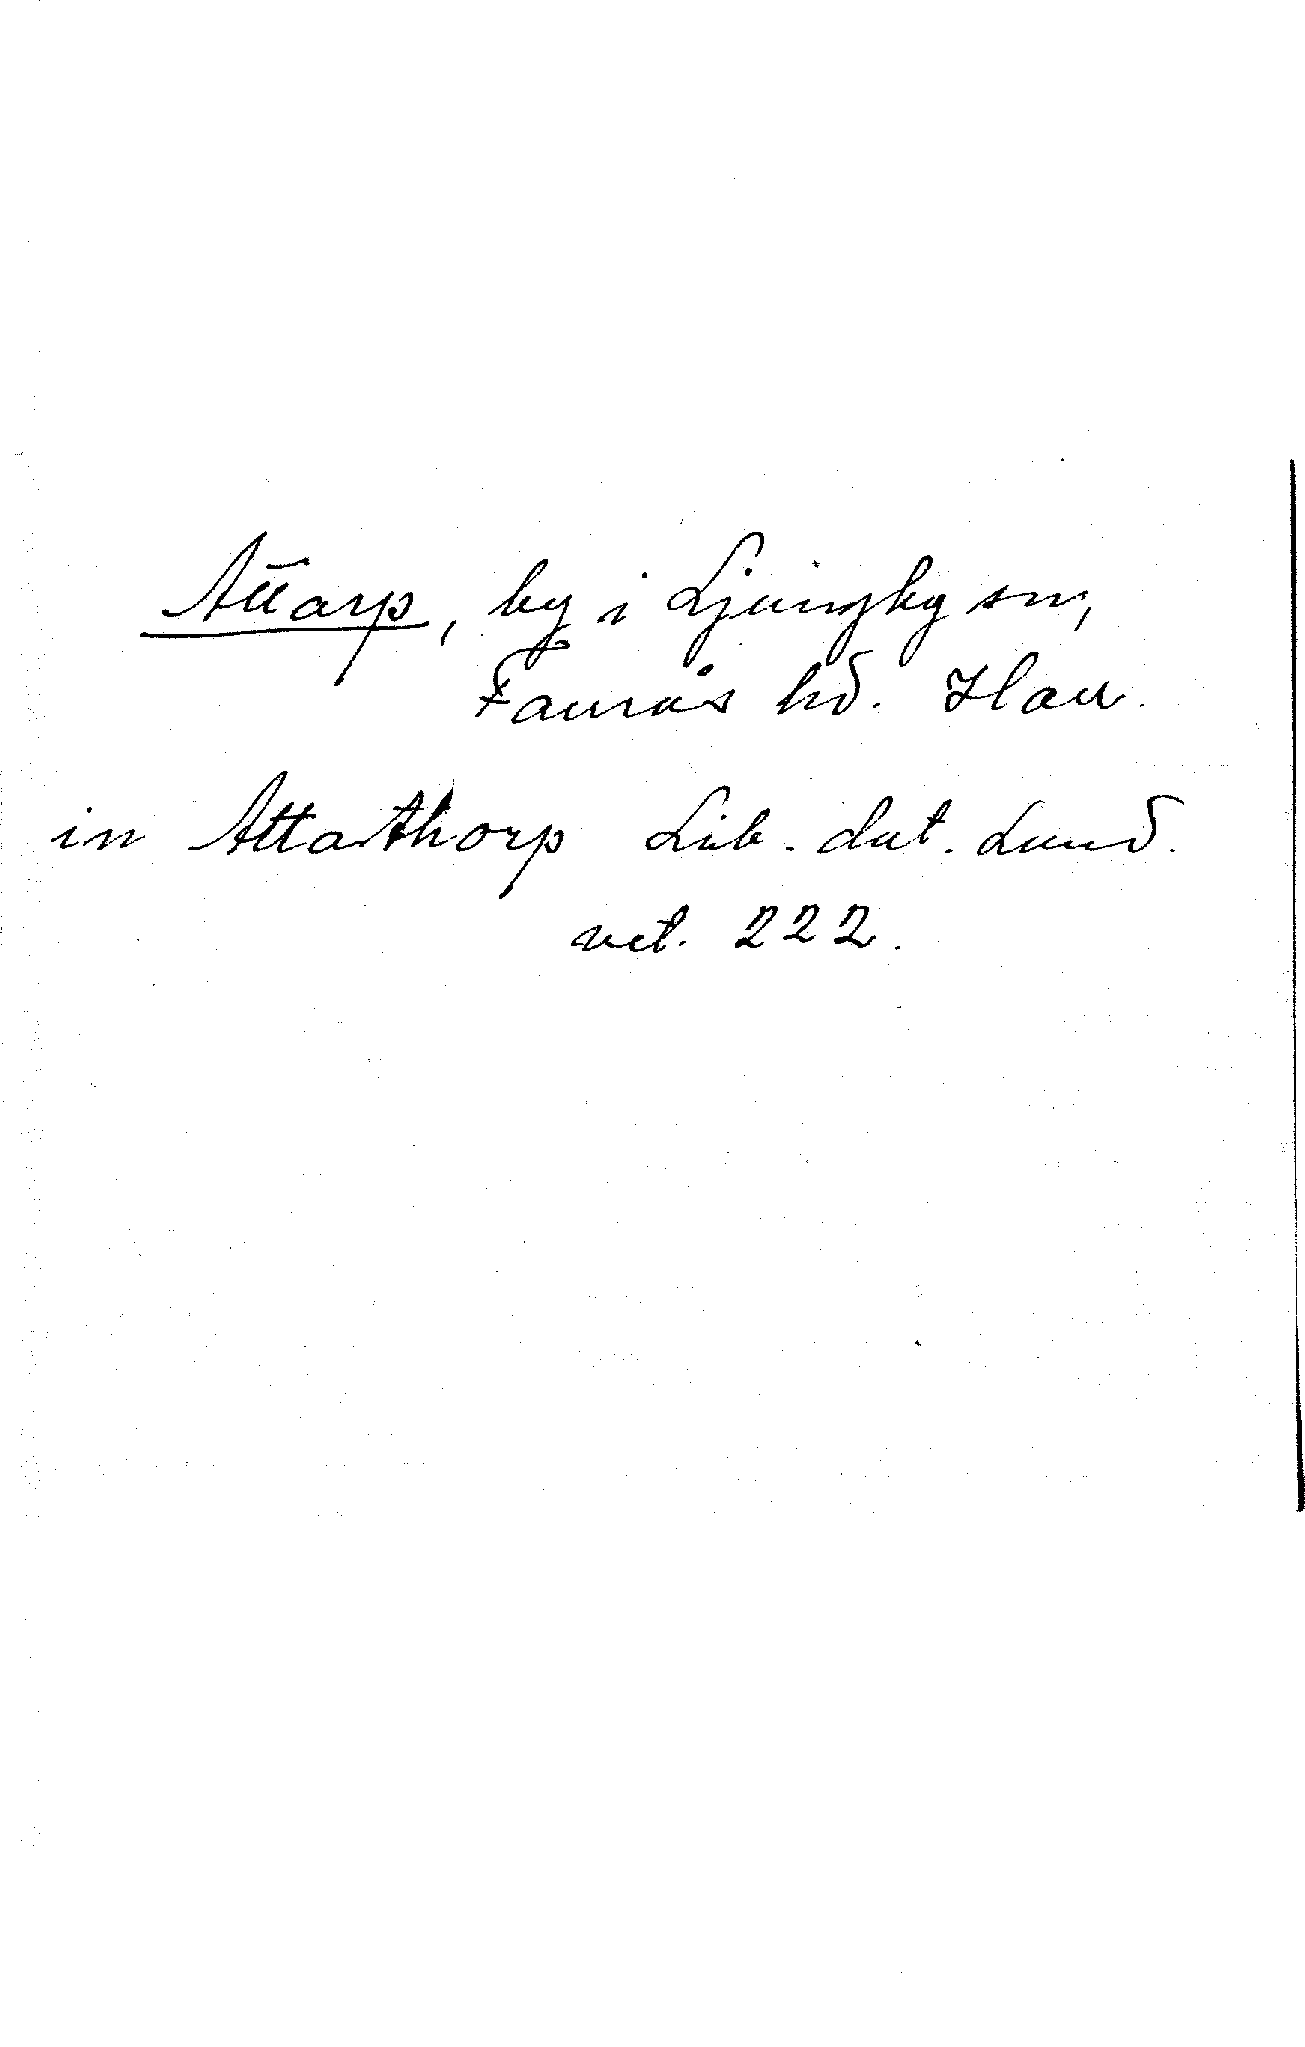 Attarp, by i Ljungby sn,
Faurås hd. Hall.
in Attarthorp Lib. dat. Lund.
vet. 222.